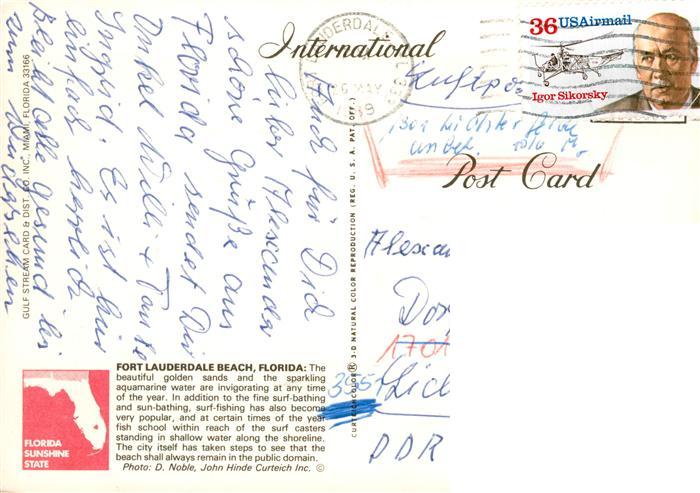 International
Post Card
36 USAirmail
Igor Sikorsky
LAUDERDALE, FL
MAY
1989
Luftpo
Auch für Dich
lieber Alexander
schöne Grüße aus
Florida sendet Dir
Onkel Willi + Tante
Ingrid. Es ist hier
herrlich
Bleibt alle gesund bis
zum Wiedersehen
Alexan
1701
3951
Lich
DDR
GULF STREAM CARD & DIST. CO. INC., MIAMI, FLORIDA 33166
CURTEICHCOLOR® 3-D NATURAL COLOR REPRODUCTION (REG. U. S. A. PAT. OFF.)
FORT LAUDERDALE BEACH, FLORIDA: The
beautiful golden sands and the sparkling
aquamarine water are invigorating at any time
of the year. In addition to the fine surf-bathing
and sun-bathing, surf-fishing has also become
very popular, and at certain times of the year
fish school within reach of the surf casters
standing in shallow water along the shoreline.
The city itself has taken steps to see that the
beach shall always remain in the public domain.
Photo: D. Noble, John Hinde Curteich Inc. ©
FLORIDA
SUNSHINE
STATE